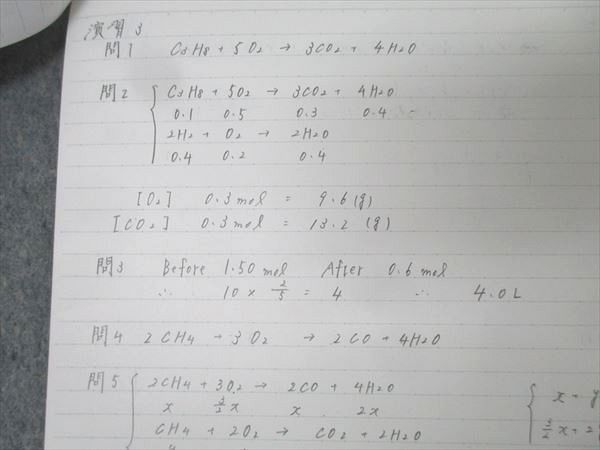 演習3
問1 C₃H₈ + 5O₂ → 3CO₂ + 4H₂O
問2 C₃H₈ + 5O₂ → 3CO₂ + 4H₂O
0.1 0.5 0.3 0.4
2H₂ + O₂ → 2H₂O
0.4 0.2 0.4
[O₂] 0.3mol = 9.6(g)
[CO₂] 0.3mol = 13.2(g)
問3 Before 1.50mol After 0.6mol
∴ 10 × 2/5 = 4 ∴ 4.0L
問4 2CH₄ + 3O₂ → 2CO + 4H₂O
問5 2CH₄ + 3O₂ → 2CO + 4H₂O
x 3/2x x 2x
x + y
CH₄ + 2O₂ → CO₂ + 2H₂O
3/2x + 2